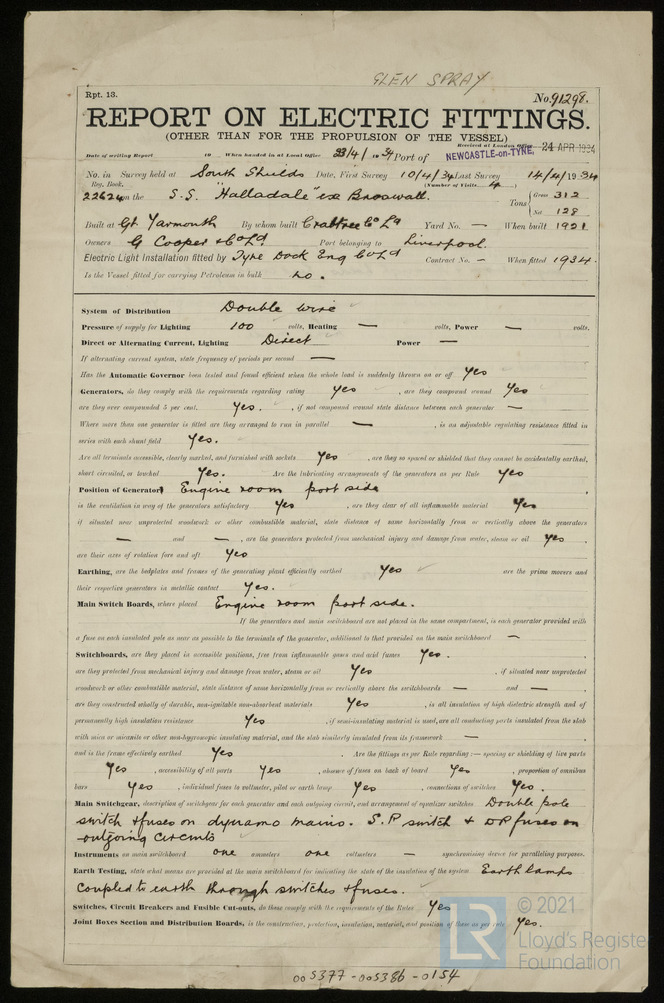 GLEN SPRAY
Rpt. 13. No. 91298.
REPORT ON ELECTRIC FITTINGS.
(OTHER THAN FOR THE PROPULSION OF THE VESSEL)
Received at London Office 24 APR 1934
Date of writing Report 19 When handed in at Local Office 23/4/1934 Port of NEWCASTLE-on-TYNE.
No. in Survey held at South Shields Date, First Survey 10/4/34 Last Survey 14/4/1934
Reg. Book. (Number of Visits 4)
22624 on the S.S. "Halladale" ex Broswall. Tons { Gross 312
Net 128
Built at Gt. Yarmouth By whom built Crabtree Co Ld Yard No. — When built 1921
Owners G Cooper & Co Ld Port belonging to Liverpool.
Electric Light Installation fitted by Tyne Dock Eng Co Ld Contract No. — When fitted 1934.
Is the Vessel fitted for carrying Petroleum in bulk no.
System of Distribution Double wire
Pressure of supply for Lighting 100 volts, Heating — volts, Power — volts.
Direct or Alternating Current, Lighting Direct Power —
If alternating current system, state frequency of periods per second —
Has the Automatic Governor been tested and found efficient when the whole load is suddenly thrown on or off Yes
Generators, do they comply with the requirements regarding rating Yes, are they compound wound Yes
are they over compounded 5 per cent. Yes., if not compound wound state distance between each generator —
Where more than one generator is fitted are they arranged to run in parallel —, is an adjustable regulating resistance fitted in
series with each shunt field Yes.
Are all terminals accessible, clearly marked, and furnished with sockets Yes, are they so spaced or shielded that they cannot be accidentally earthed,
short circuited, or touched Yes. Are the lubricating arrangements of the generators as per Rule Yes
Position of Generators Engine room port side
is the ventilation in way of the generators satisfactory Yes, are they clear of all inflammable material Yes
if situated near unprotected woodwork or other combustible material, state distance of same horizontally from or vertically above the generators
— and —, are the generators protected from mechanical injury and damage from water, steam or oil Yes.
are their axes of rotation fore and aft Yes
Earthing, are the bedplates and frames of the generating plant efficiently earthed Yes are the prime movers and
their respective generators in metallic contact Yes.
Main Switch Boards, where placed Engine room port side.
If the generators and main switchboard are not placed in the same compartment, is each generator provided with
a fuse on each insulated pole as near as possible to the terminals of the generator, additional to that provided on the main switchboard —
Switchboards, are they placed in accessible positions, free from inflammable gases and acid fumes Yes.
are they protected from mechanical injury and damage from water, steam or oil Yes, if situated near unprotected
woodwork or other combustible material, state distance of same horizontally from or vertically above the switchboards — and —
are they constructed wholly of durable, non-ignitable non-absorbent materials Yes, is all insulation of high dielectric strength and of
permanently high insulation resistance Yes, if semi-insulating material is used, are all conducting parts insulated from the slab
with mica or micanite or other non-hygroscopic insulating material, and the slab similarly insulated from its framework —
and is the frame effectively earthed Yes. Are the fittings as per Rule regarding :— spacing or shielding of live parts
Yes, accessibility of all parts Yes, absence of fuses on back of board Yes, proportion of omnibus
bars Yes, individual fuses to voltmeter, pilot or earth lamp Yes, connections of switches Yes.
Main Switchgear, description of switchgear for each generator and each outgoing circuit, and arrangement of equalizer switches Double pole
switch & fuses on dynamo mains. S.P. switch & DP fuses on
outgoing circuits
Instruments on main switchboard one ammeters one voltmeters — synchronising device for paralleling purposes.
Earth Testing, state what means are provided at the main switchboard for indicating the state of the insulation of the system Earth lamps
coupled to earth through switches & fuses.
Switches, Circuit Breakers and Fusible Cut-outs, do these comply with the requirements of the Rules Yes
Joint Boxes Section and Distribution Boards, is the construction, protection, insulation, material, and position of these as per rule Yes.
© 2021
LR
Lloyd's Register
Foundation
005377-005386-0154